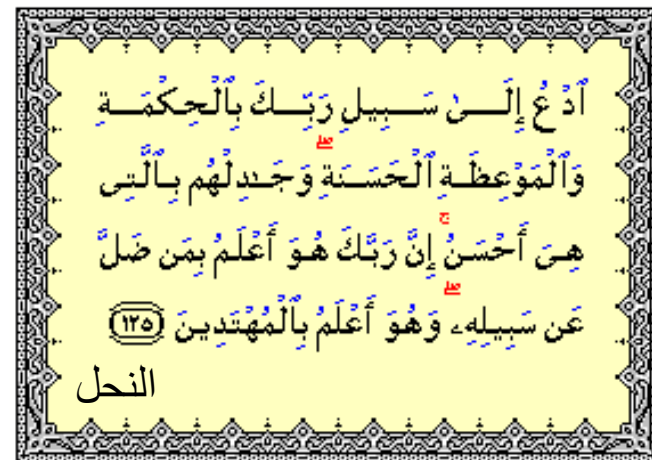 ٱدْعُ إِلَـــىٰ سَـــبِيلِ رَبِّـــكَ بِٱلْحِكْمَـــةِ
وَٱلْمَوْعِظَـةِ ٱلْحَسَـنَةِ ۖ وَجَـٰدِلْهُم بِـٱلَّتِى
هِىَ أَحْسَنُ ۚ إِنَّ رَبَّكَ هُوَ أَعْلَمُ بِمَن ضَلَّ
عَن سَبِيلِهِۦ ۖ وَهُوَ أَعْلَمُ بِٱلْمُهْتَدِينَ ١٢٥
النحل